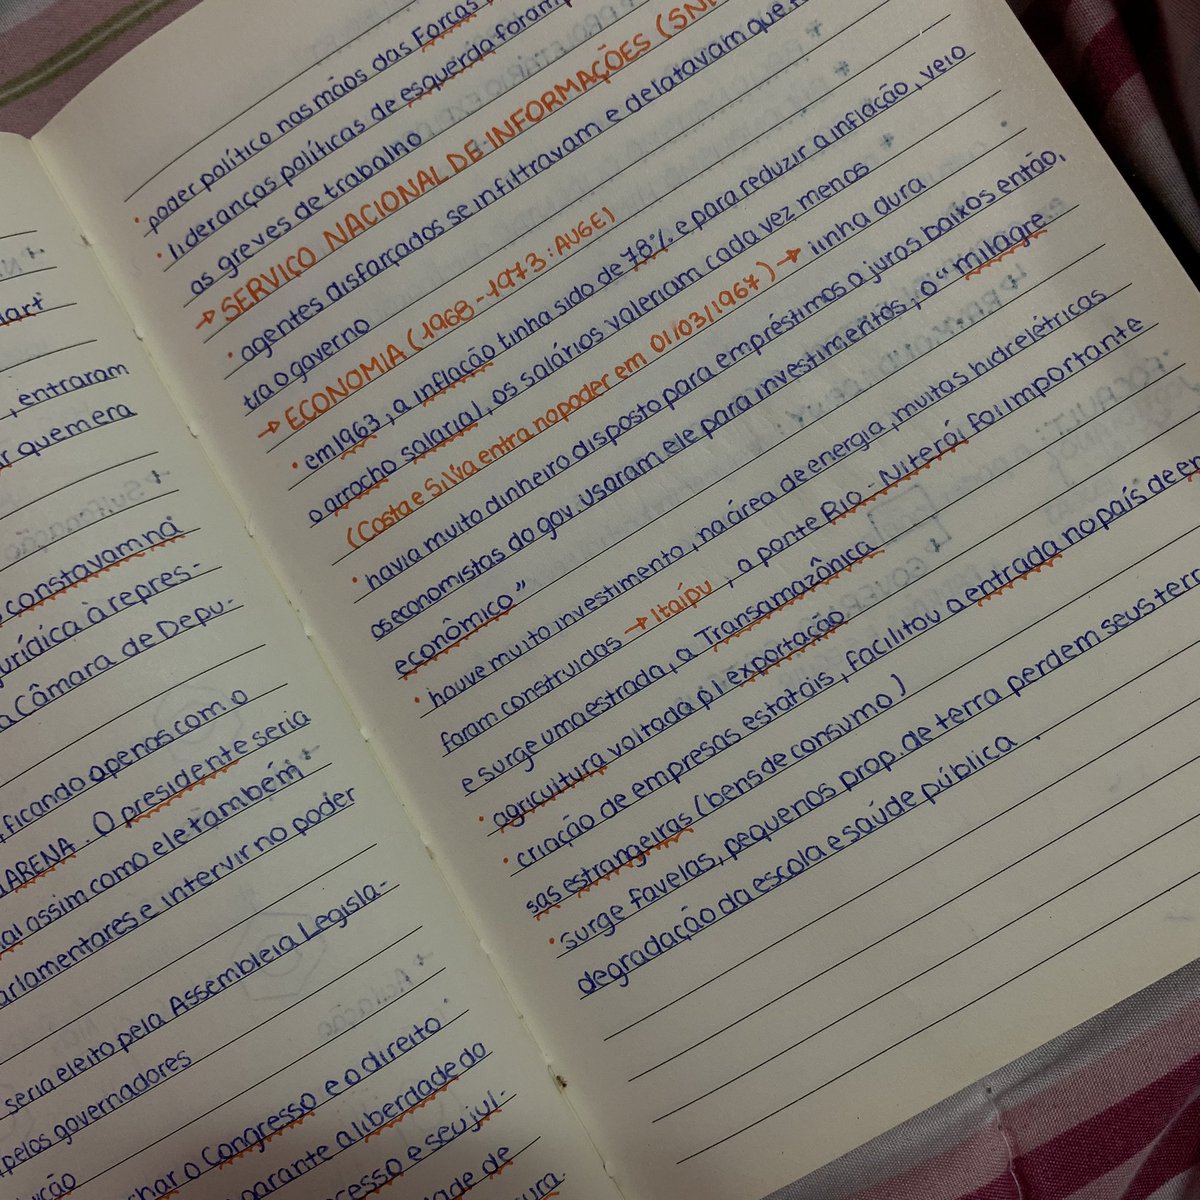 lart
, entraram
r quem era
constavam na
urídica à repres-
a Câmara de Depu-
ficando apenas com o
ARENA. O presidente seria
al assim como ele também
arlamentares e intervir no poder
seria eleito pela Assembleia Legisla-
pelos governadores
char o Congresso e o direito
garante a liberdade do
cesso e seu jul-
dade de
ura.
poder político nas mãos das Forças
• lideranças políticas de esquerda foram
as greves de trabalho
→ SERVIÇO NACIONAL DE INFORMAÇÕES (SNI
• agentes disfarçados se infiltravam e delatavam que
tra o governo
→ ECONOMIA (1968-1973: AUGE)
• em 1963, a inflação tinha sido de 78% e para reduzir a inflação, veio
o arrocho salarial, os salários valeriam cada vez menos
(Costa e Silva entra no poder em 01/03/1967) → linha dura
• havia muito dinheiro disposto para empréstimos a juros baixos então,
os economistas do gov. usaram ele para investimentos, o "milagre
econômico"
• houve muito investimento, na área de energia, muitas hidrelétricas
foram construídas → Itaípu, a ponte Rio-Niterói foi importante
e surge uma estrada, a Transamazônica
• agricultura voltada p/ exportação
• criação de empresas estatais, facilitou a entrada no país de em
sas estrangeiras (bens de consumo)
• surge favelas, pequenos prop. de terra perdem seus terr
degradação da escola e saúde pública.